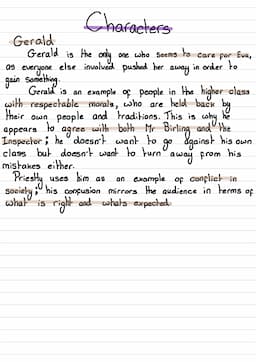 Characters
Gerald
Gerald is the only one who seems to care for Eva,
as everyone else involved pushed her away in order to
gain something.
Gerald is an example of people in the higher class
with respectable morals, who are held back by
their own people and traditions. This is why he
appears to agree with both Mr Birling and the
Inspector; he doesn't want to go against his own
class but doesn't want to turn away from his
mistakes either.
Priestly uses him as an example of conflict in
society; his confusion mirrors the audience in terms of
what is right and whats expected.